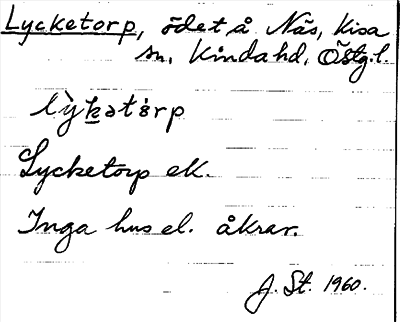 Lycketorp, ödet å Näs, Kisa
sn, Kinda hd, Östg.l.
lỳḵətɵrp
Lycketorp ek.
Inga hus el. åkrar.
J. St. 1960.